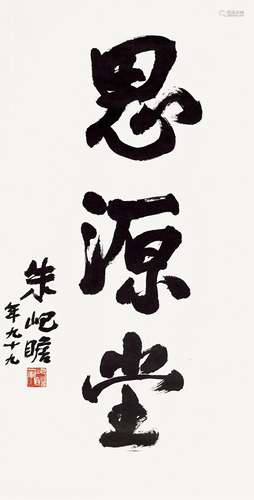 思源堂
朱屺瞻
年九十九